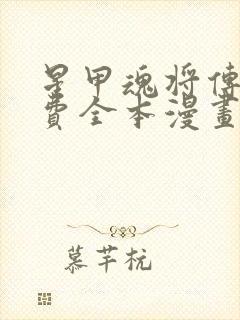 星甲魂将傳
費全本漫畫
慕芊杭